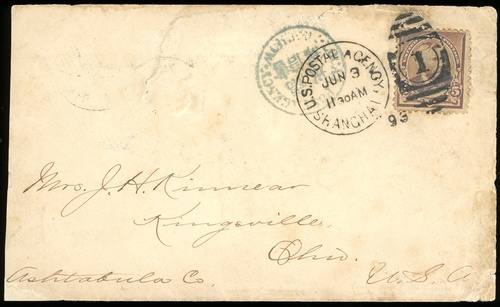 U.S. POSTAL AGENCY
JUN 3
11 30 AM
SHANGHAI
93
1
5
Mrs. J. H. Kinnear
Kingsville,
Ohio.
Ashtabula Co.
U. S. A